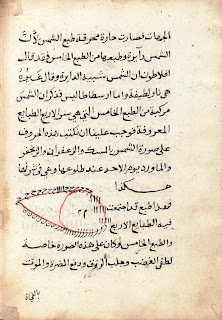 الجهات فصارت حارة محرقة طبع الشمس لان
الشمس دايرة وطبعها من الطبع الخامس وقد قال
افلاطون ان الشمس شبيه الدايرة وقال غيره
هي نار لطيفة واما ارسطاطاليس فذكر ان الشمس
مركبة من الطبع الخامس التي هي سوا الاربع الطبايع
المعروفة فوجب علينا ان نكتب هذه الحروف
على صورة الشمس بالمسك والزعفران والزنجفر
والماورد يوم الاحد عند طلوعها وهي
هكذا
فهذا طبع قد اجتمعت
فيه الطبايع الاربع
والطبع الخامس وكان على هذه الصورة خاصة
لطفي الغضب وجلب الروف ودفع المضرة والموت